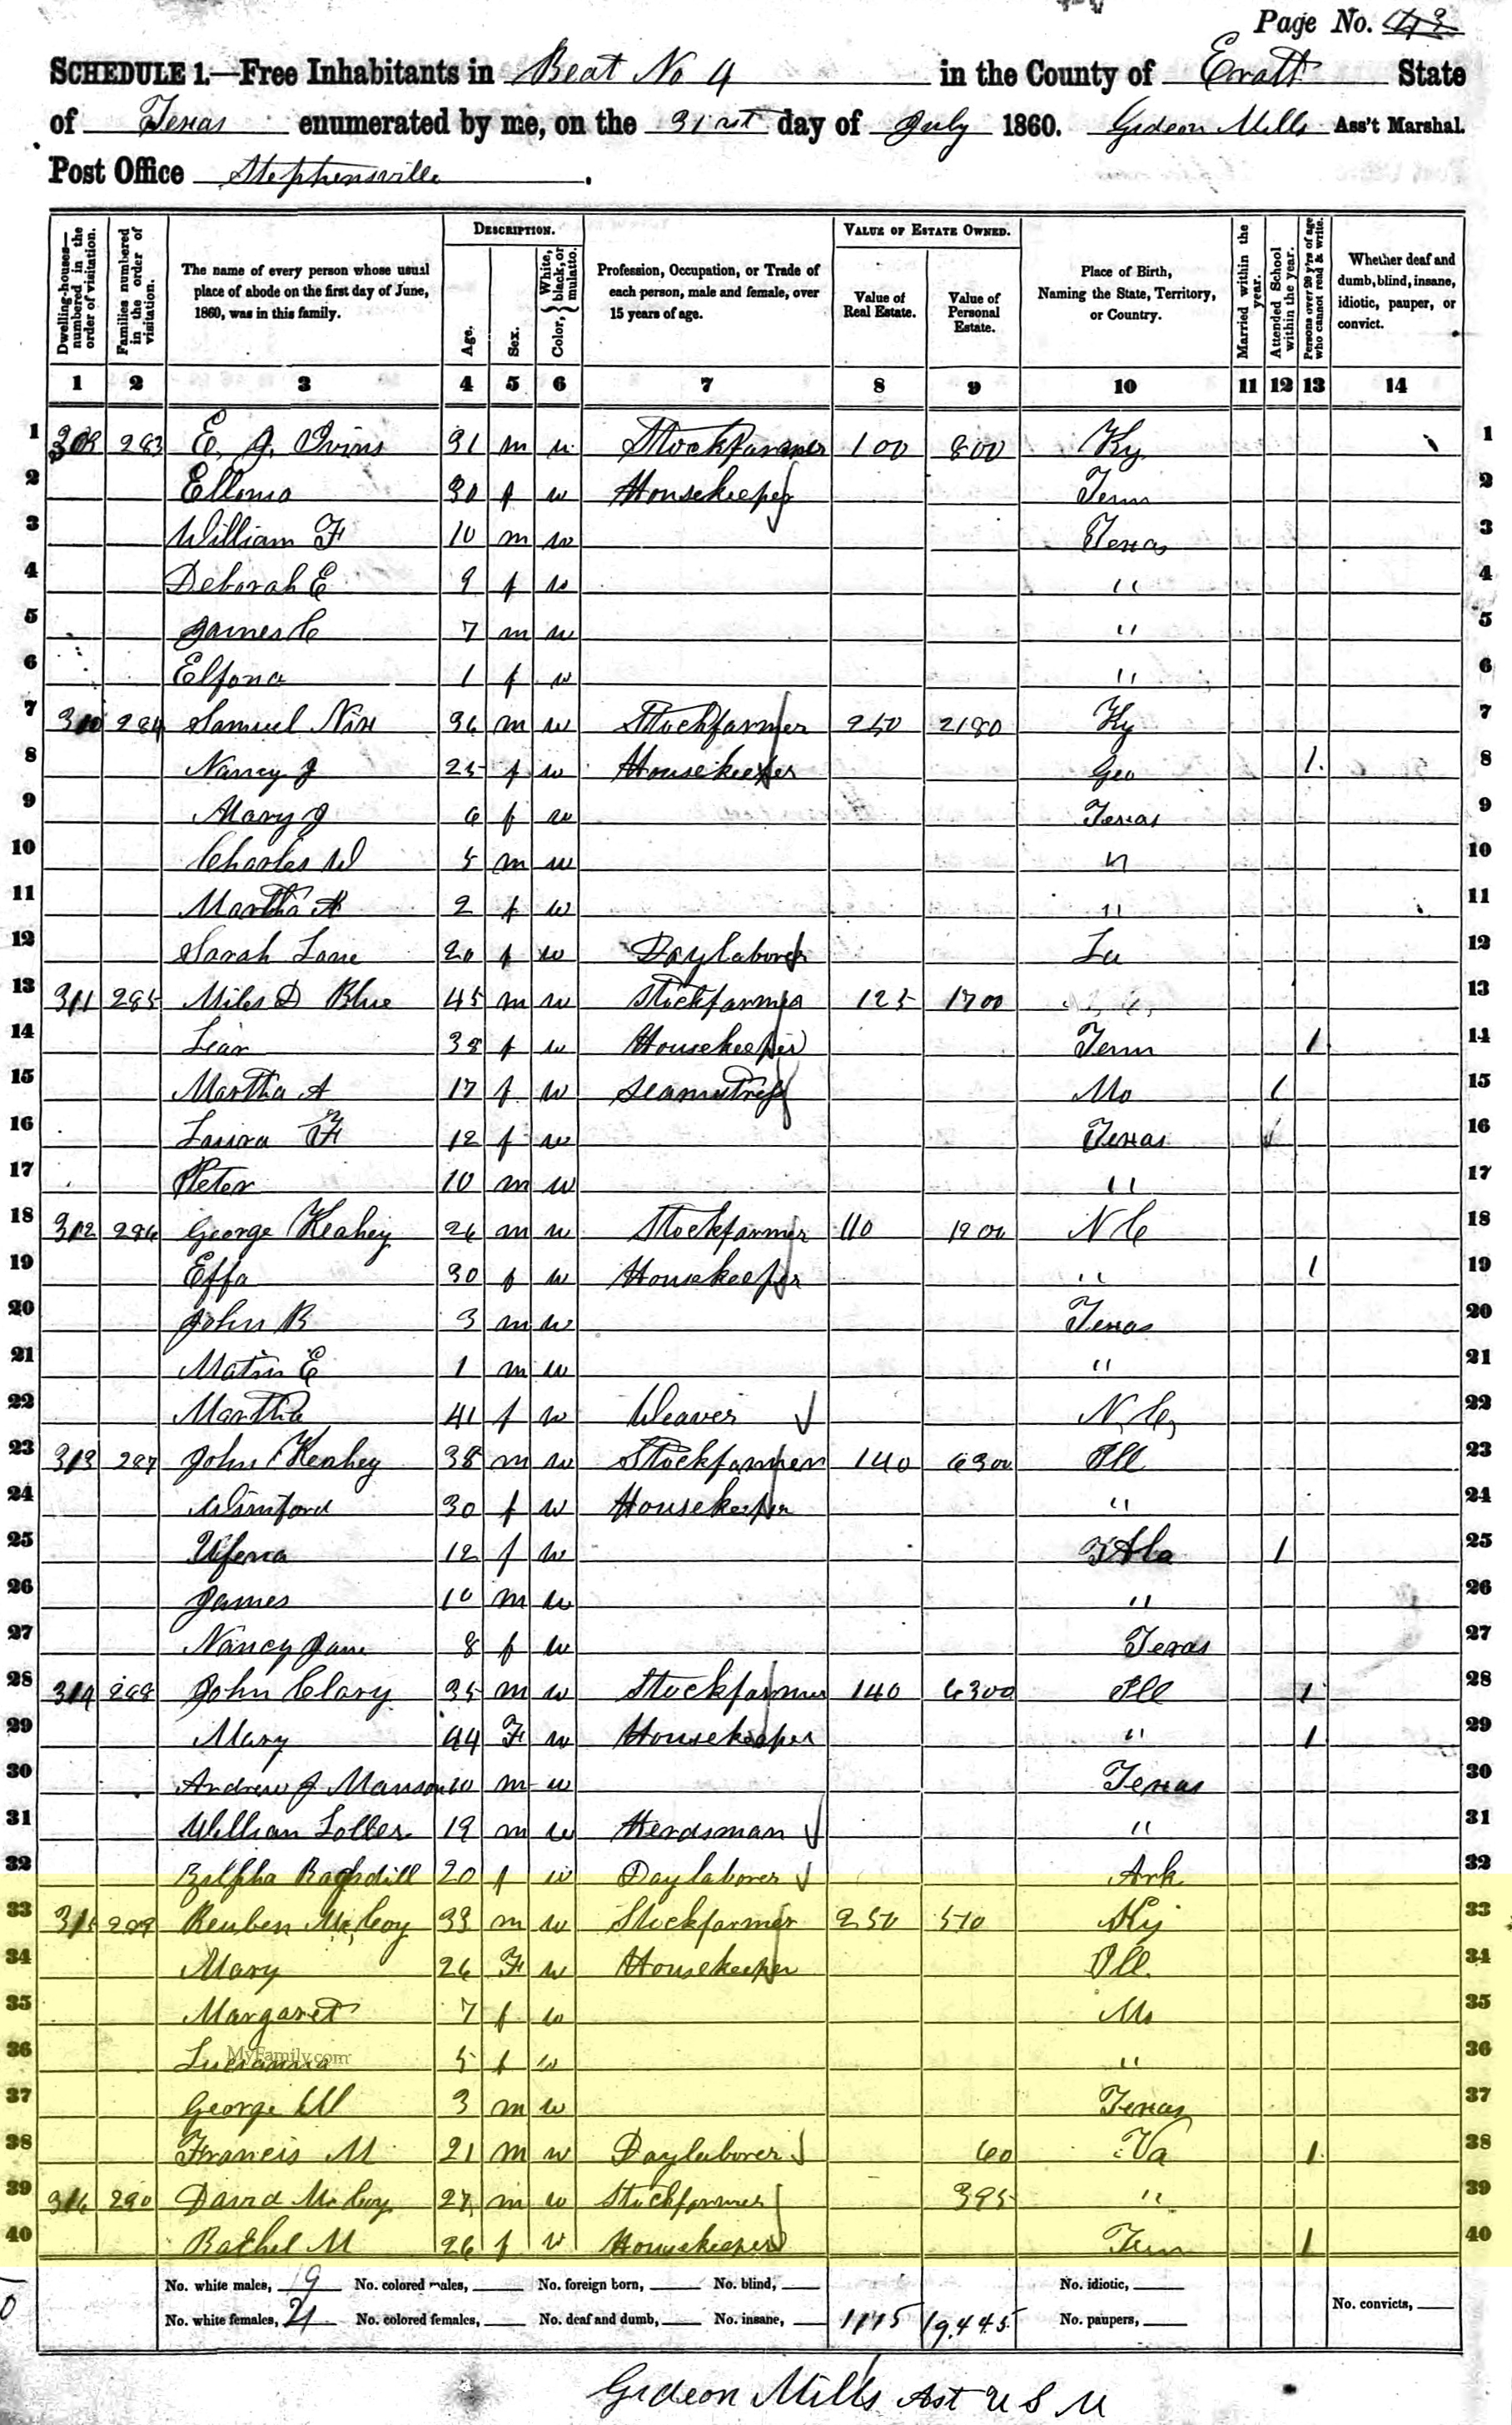 Page No. 43
SCHEDULE 1.—Free Inhabitants in Beat No 4 in the County of Erath State
of Texas enumerated by me, on the 31st day of July 1860. Gideon Mills Ass't Marshal.
Post Office Stephensville.
DESCRIPTION. VALUE OF ESTATE OWNED.
Dwelling-houses—numbered in the order of visitation. Families numbered in the order of visitation. The name of every person whose usual place of abode on the first day of June, 1860, was in this family. Age. Sex. Color, { White, black, or mulatto. Profession, Occupation, or Trade of each person, male and female, over 15 years of age. Value of Real Estate. Value of Personal Estate. Place of Birth, Naming the State, Territory, or Country. Married within the year. Attended School within the year. Persons over 20 y'rs of age who cannot read & write. Whether deaf and dumb, blind, insane, idiotic, pauper, or convict.
1 2 3 4 5 6 7 8 9 10 11 12 13 14
1 309 283 E. J. 31 m w Stockfarmer 100 800 Ky 1
2 30 f w Housekeeper Tenn 2
3 William F 10 m w Texas 3
4 Deborah E 9 f w " 4
5 James C 7 m w " 5
6 1 f w " 6
7 310 284 Samuel Nix 36 m w Stockfarmer 250 2180 Ky 7
8 Nancy J 25 f w Housekeeper Geo 1. 8
9 Mary J 6 f w Texas 9
10 Charles W 5 m w " 10
11 Martha A 2 f w " 11
12 Sarah Lane 20 f w Daylaborer La 12
13 311 285 Miles D Blue 45 m w Stockfarmer 125 1700 13
14 38 f w Housekeeper Tenn 1 14
15 Martha A 17 f w Seamstress Mo 1 15
16 Laura F 12 f w Texas 1 16
17 Peter 10 m w " 17
18 312 286 George Keahey 26 m w Stockfarmer 110 1200 N C 18
19 Effa 30 f w Housekeeper " 1 19
20 John B 3 m w Texas 20
21 E 1 m w " 21
22 Martha 41 f w Weaver N. C, 22
23 313 287 John Keahey 38 m w Stockfarmer 140 6300 Ill 23
24 Winiford 30 f w Housekeeper " 24
25 12 f w Ala 1 25
26 James 10 m w " 26
27 Nancy Jane 8 f w Texas 27
28 314 288 John Clary 35 m w Stockfarmer 140 6300 Ill 1 28
29 Mary 44 F w Housekeeper " 1 29
30 Andrew J Manson 10 m w Texas 30
31 William Loller 19 m w Herdsman " 31
32 Zilpha Ragsdill 20 f w Daylaborer Ark 32
33 315 289 Reuben McCoy 33 m w Stockfarmer 250 510 Ky 33
34 Mary 26 F w Housekeeper Ill. 34
35 Margaret 7 f w Mo 35
36 5 f w " 36
MyFamily.com
37 George W 3 m w Texas 37
38 Francis M 21 m w Daylaborer 60 Va 1. 38
39 316 290 David McCoy 27 m w Stockfarmer 395 " 39
40 Rachel M 26 f w Housekeeper Tenn 1 40
No. white males, 19 No. colored males, No. foreign born, No. blind, No. idiotic,
No. white females, 21 No. colored females, No. deaf and dumb, No. insane, 1115 19,445 No. paupers, No. convicts,
Gideon Mills Ast U S M